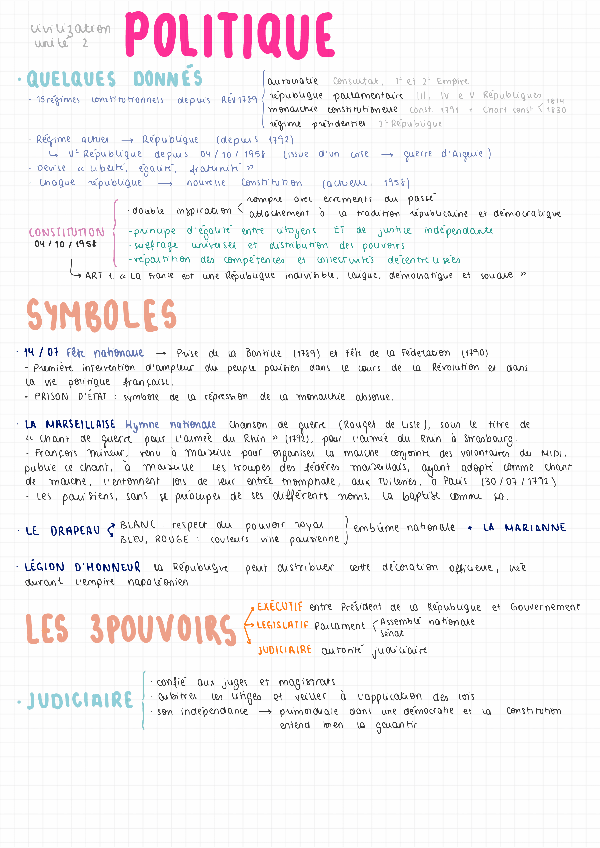 civilization
unité 2
POLITIQUE
· QUELQUES DONNÉS
- 15 régimes constitutionnels depuis RÉV 1789
autocratie Consultat, 1º et 2º Empire
république parlamentaire III, IV e V Républiques
monarchie constitutionelle const. 1791 + Chart const < 1814
1830
régime présidentiel 2º République
- Régime actuel → République (depuis 1792)
↳ Vº République depuis 04/10/1958 (issue d'un crise → guerre d'Algerie)
- Devise « liberté, égalité, fraternité »
Chaque république → nouvelle Constitution (actuelle: 1958)
CONSTITUTION
04/10/1958
· double inspiration < rompre avec errements du passé
attachement à la tradition républicaine et démocratique
- principe d'égalité entre citoyens ET de justice indépendante
- suffrage universel et distribution des pouvoirs
- répartition des compétences et collectivités décentralisées
↳ ART 1. « La France est une République indivisible, laïque, démocratique et sociale »
SYMBOLES
· 14/07 Fête nationale → Prise de la Bastille (1789) et Fête de la Fédération (1790)
- Première intervention d'ampleur du peuple parisien dans le cours de la Révolution et dans
la vie politique française.
- PRISON D'ÉTAT : symbole de la répression de la monarchie absolue.
· LA MARSEILLAISE Hymne nationale Chanson de guerre (Rouget de Lisle), sous le titre de
« Chant de guerre pour l'armée du Rhin » (1792), pour l'armée du Rhin à Strasbourg.
- François Mireur, venu à Marseille pour organiser la marche conjointe des volontaires du MIDI,
publie ce chant, à Marseille. Les troupes des fédérés marseillais, ayant adopté comme chant
de marche, l'entonnent lors de leur entrée triomphale, aux Tuileries, à Paris (30/07/1792)
- Les parisiens, sans se préoccuper de ses différents noms, la baptise comme ça.
· LE DRAPEAU BLANC respect du pouvoir royal
BLEU, ROUGE : couleurs ville parisienne
emblème nationale + LA MARIANNE
· LÉGION D'HONNEUR la République peut distribuer cette décoration officielle, créé
durant l'empire napoléonien
LES 3POUVOIRS
EXÉCUTIF entre Président de la République et Gouvernement
LÉGISLATIF Parlament Assemblé nationale
Sénat
JUDICIAIRE autorité judiciaire
· JUDICIAIRE
· confié aux juges et magistrats
· arbitrer les litiges et veiller à l'application des lois
· son indépendance → primordiale dans une démocratie et la Constitution
entend bien la garantir